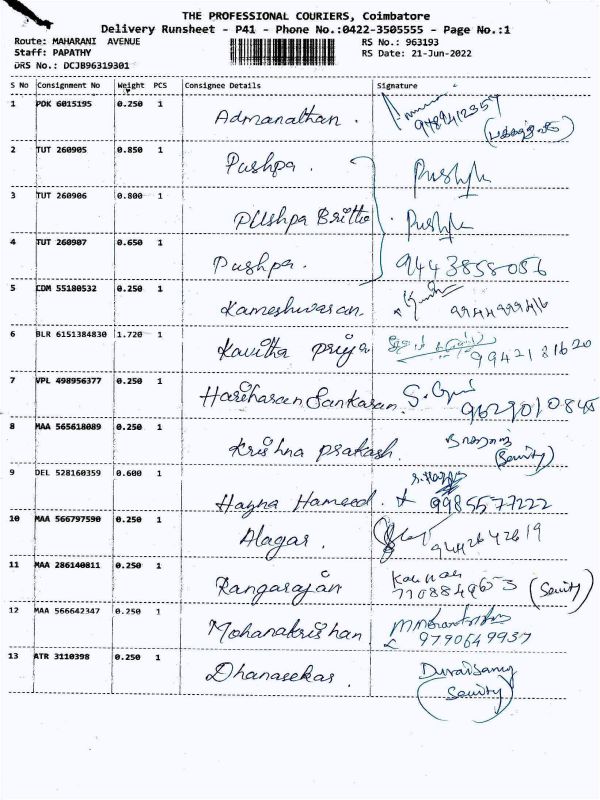 THE PROFESSIONAL COURIERS, Coimbatore
Delivery Runsheet - P41 - Phone No.:0422-3505555 - Page No.:1
Route: MAHARANI AVENUE RS No.: 963193
Staff: PAPATHY RS Date: 21-Jun-2022
DRS No.: DCJB96319301
S No Consignment No Weight PCS Consignee Details Signature
1 POK 6015195 0.250 1 Admanathan.
9489412357
2 TUT 260905 0.850 1 Pushpa.
3 TUT 260906 0.800 1 Pushpa Britto.
4 TUT 260907 0.650 1 Pushpa. 9443858056
5 CDM 55180532 0.250 1 Kameshwaran. 9944999416
6 BLR 6151384830 1.720 1 Kavitha priya 9942181620
7 VPL 498956377 0.250 1 Hariharan Sankaran. 9629010845
8 MAA 565618089 0.250 1 Krishna prakash.
9 DEL 528160359 0.600 1 Hazna Hameed. 9985577222
10 MAA 566797590 0.250 1 Alagar. 9442642619
11 MAA 286140811 0.250 1 Rangarajan Kannan
7708849653
12 MAA 566642347 0.250 1 Mohanakrishan.
9790649937
13 ATR 3110398 0.250 1 Dhanasekar. Duraisamy